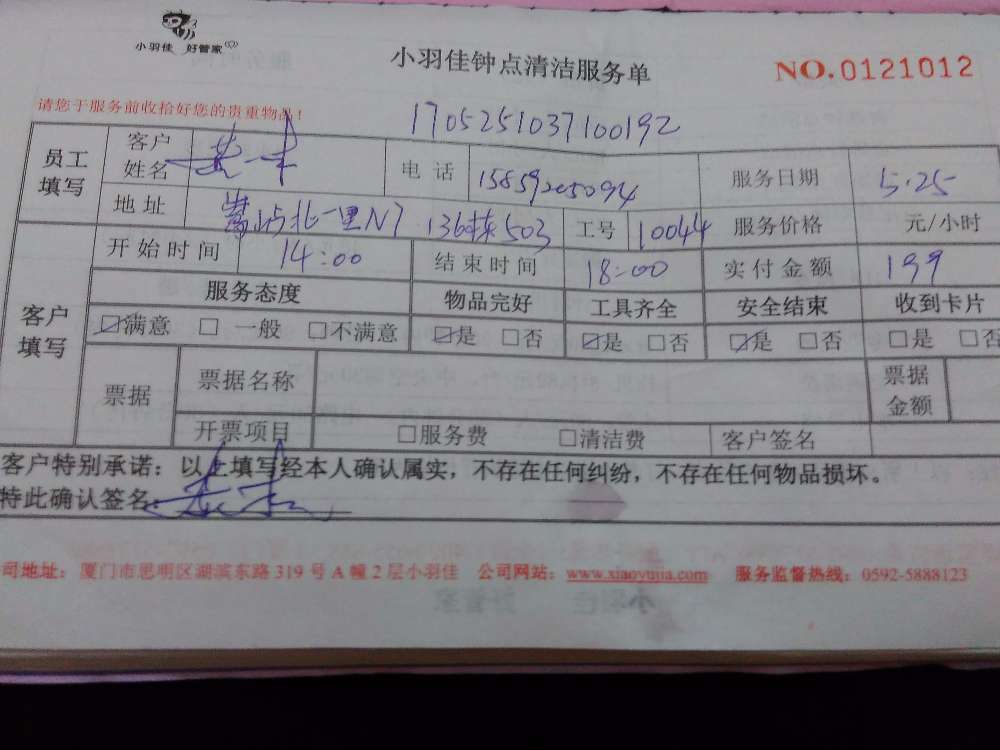 小羽佳 好管家
小羽佳钟点清洁服务单
NO.0121012
请您于服务前收拾好您的贵重物品！
1705251037100192
员工填写
客户姓名
电 话 15859205094 服务日期 5.25
地 址 嵩屿北一里N7 136栋503 工号 10044 服务价格 元/小时
客户填写
开始时间 14:00 结束时间 18:00 实付金额 199
服务态度 物品完好 工具齐全 安全结束 收到卡片
☑满意 □ 一般 □不满意 ☑是 □否 ☑是 □否 ☑是 □否 □是 □否
票据 票据名称 票据金额
开票项目 □服务费 □清洁费 客户签名
客户特别承诺：以上填写经本人确认属实，不存在任何纠纷，不存在任何物品损坏。
特此确认签名:
司地址：厦门市思明区湖滨东路 319 号 A 幢 2 层小羽佳 公司网站：www.xiaoyujia.com 服务监督热线：0592-5888123